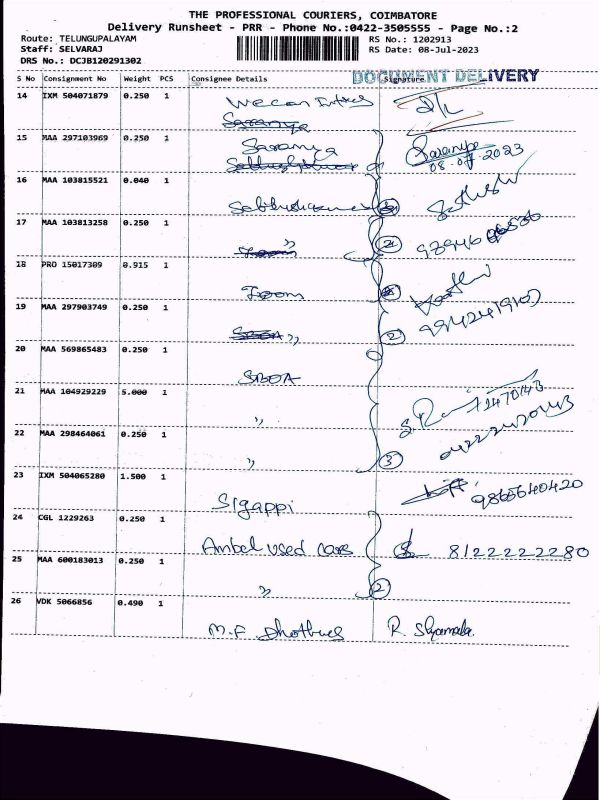 THE PROFESSIONAL COURIERS, COIMBATORE
Delivery Runsheet - PRR - Phone No.:0422-3505555 - Page No.:2
Route: TELUNGUPALAYAM RS No.: 1202913
Staff: SELVARAJ RS Date: 08-Jul-2023
DRS No.: DCJB120291302
S No Consignment No Weight PCS Consignee Details Signature
DOCUMENT DELIVERY
14 IXM 504071879 0.250 1
Wecan
Saranya
15 MAA 297103969 0.250 1
Saranya
Saranya
08.07.2023
16 MAA 103815521 0.040 1
Sathish
17 MAA 103813258 0.250 1
" 2
18 PRO 15017309 0.915 1
19 MAA 297903749 0.250 1
SBOA " 2
20 MAA 569865483 0.250 1
SBOA
21 MAA 104929229 5.000 1
"
22 MAA 298464061 0.250 1
" 3
23 IXM 504065280 1.500 1
Sigappi 9865640420
24 CGL 1229263 0.250 1
Ambal used cars 8122222280
25 MAA 600183013 0.250 1
" 2
26 VDK 5066856 0.490 1
M.F R. Shyamala.